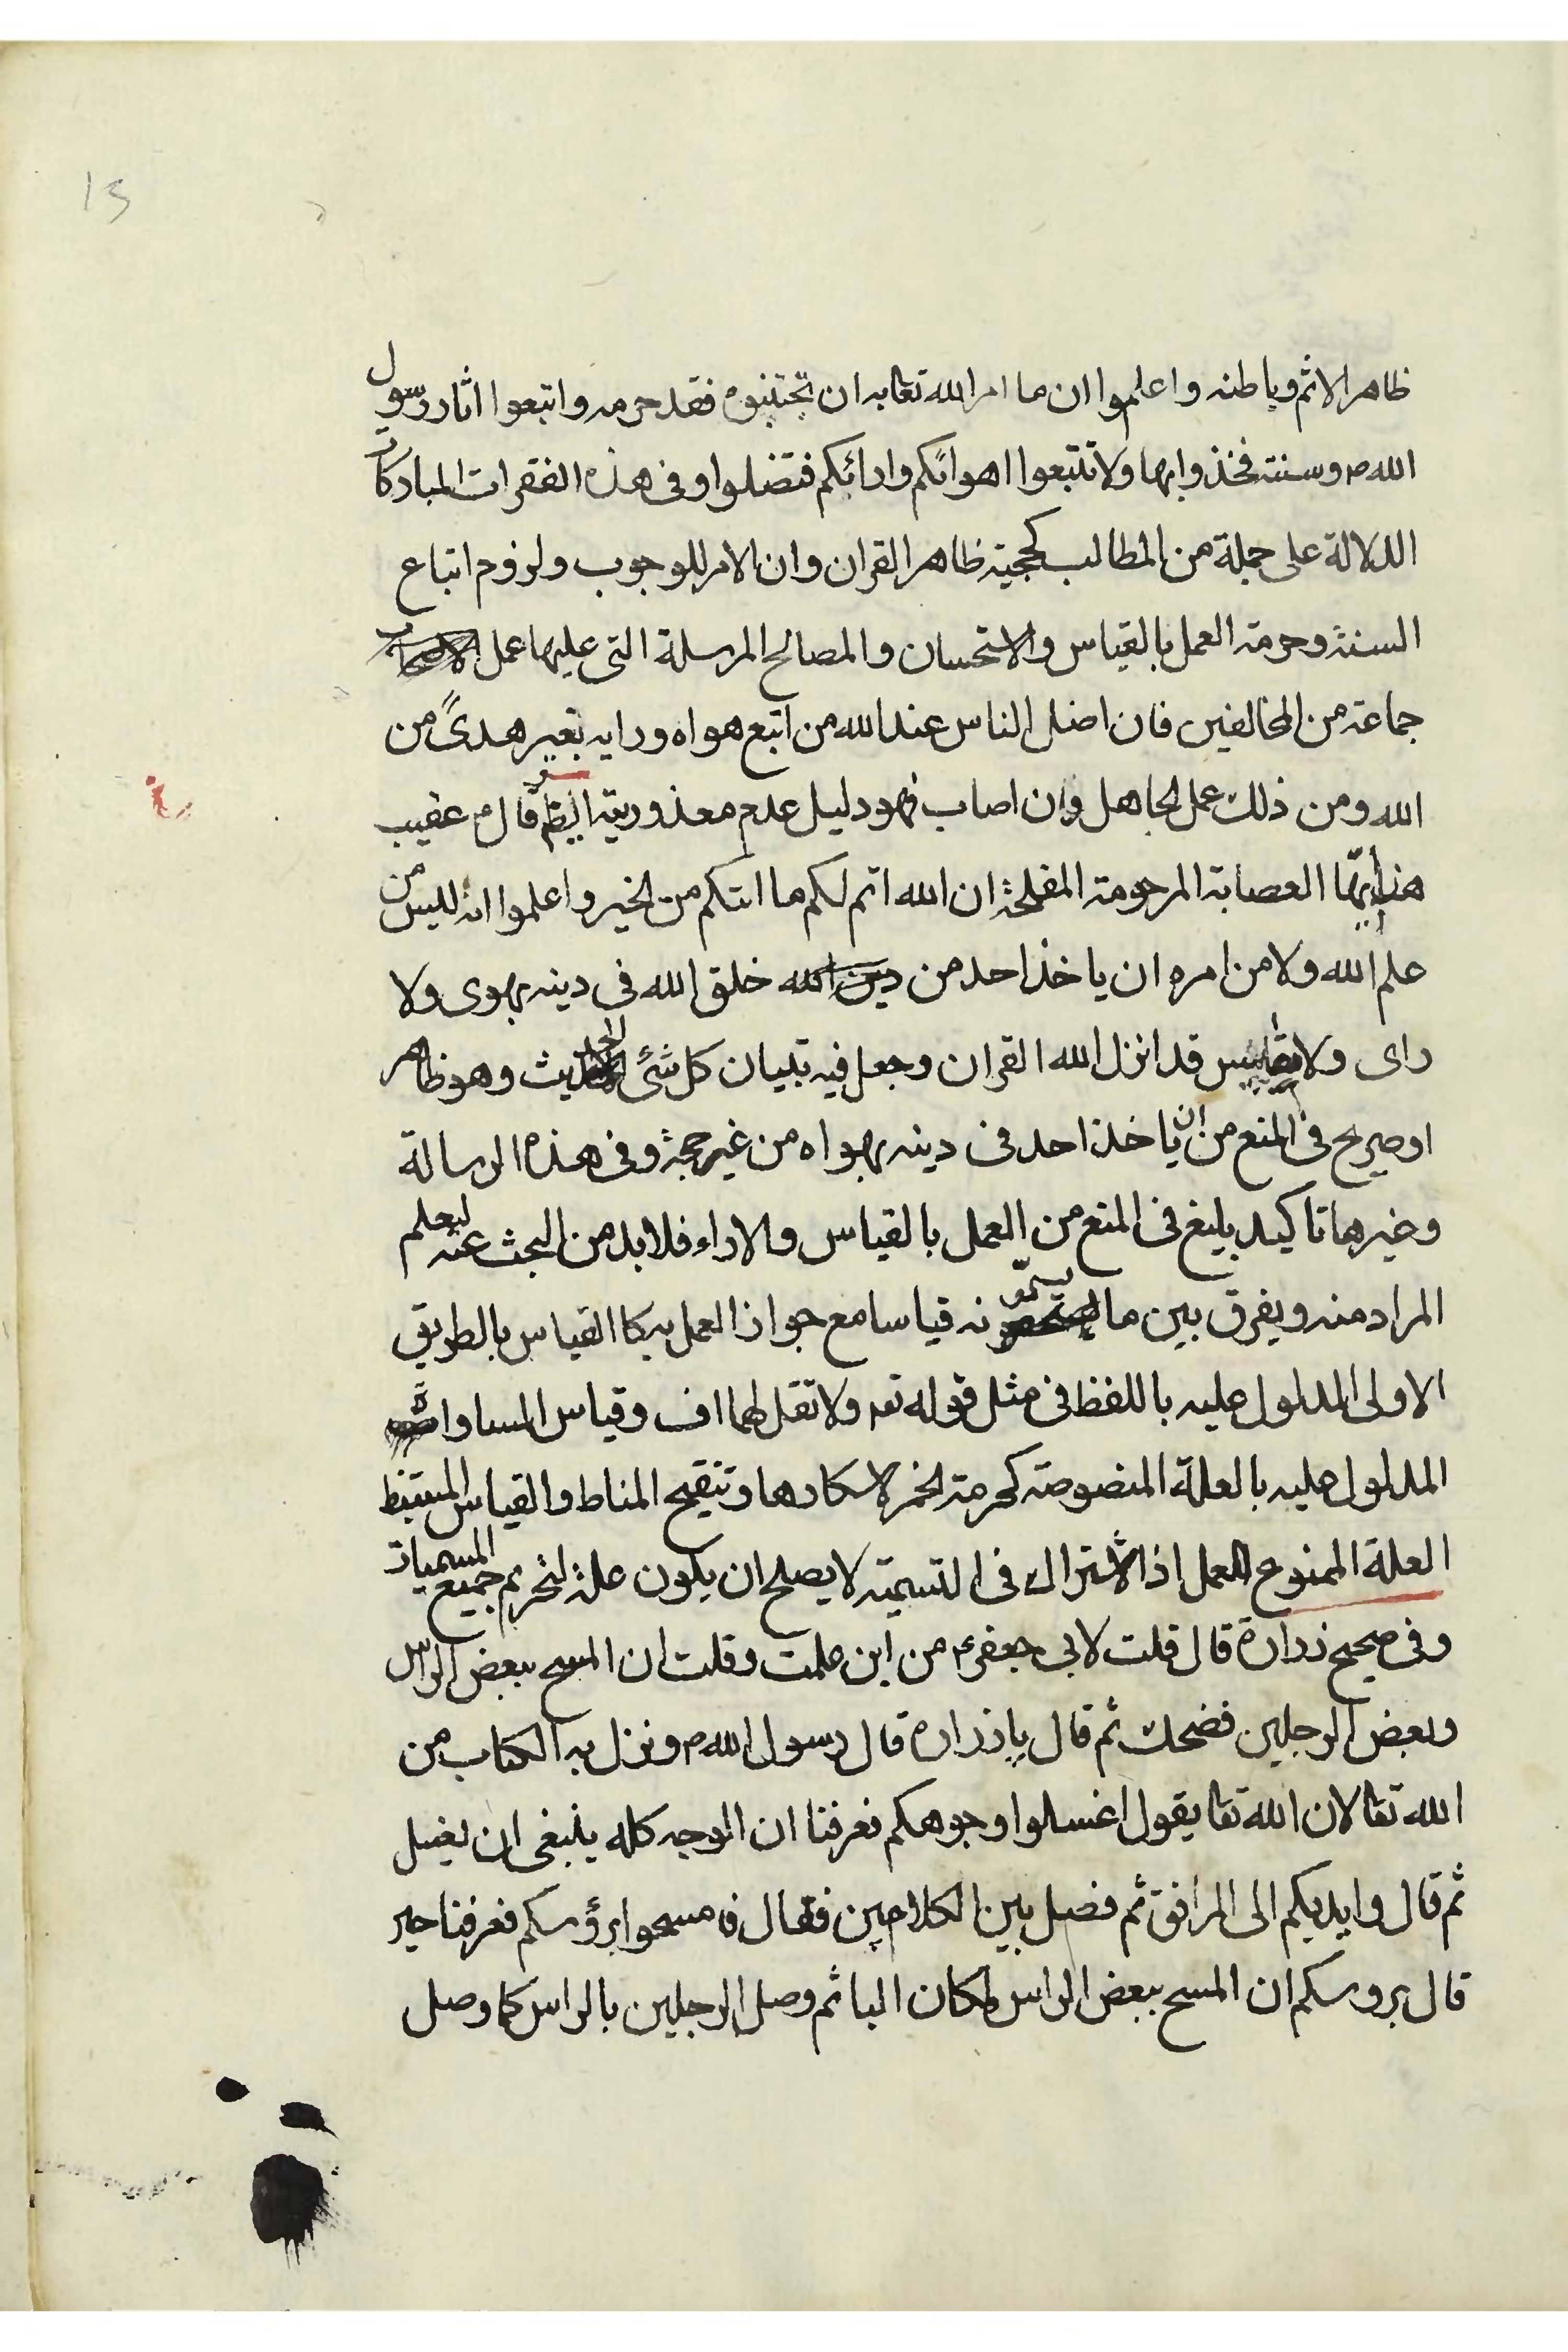 13
ظاهر الاثم وباطنه واعلموا ان ما امر الله تعا به ان تجتنبوه فقد حرمه واتبعوا اثار رسول
الله ص وسنته فخذوا بها ولا تتبعوا اهوائكم وارائكم فتضلوا وفى هذه الفقرات المباركات
الدلالة على جملة من المطالب كحجية ظاهر القران وان الامر للوجوب ولزوم اتباع
السنة وحرمة العمل بالقياس والاستحسان والمصالح المرسلة التى عليها عمل
جماعة من المخالفين فان اضل الناس عند الله من اتبع هواه ورايه بغير هدىً من
الله ومن ذلك عمل الجاهل وان اصاب فهو دليل عدم معذوريته ايضا قال ع عقيب
هذا ايتها العصابة المرحومة المفلحة ان الله اتم لكم ما اتيكم من الخير واعلموا انه ليس من
علم الله ولا من امره ان ياخذ احد من خلق الله فى دينه بهوى ولا
راى ولا مقاييس قد انزل الله القران وجعل فيه تبيان كل شئ الحديث وهو ظاهر
او صريح فى المنع من ان ياخذ احد فى دينه بهواه من غير حجة وفى هذه الرسالة
وغيرها تاكيد بليغ فى المنع من العمل بالقياس والاراء فلا بد من البحث عنه ليعلم
المراد منه ويفرق بين ما يسمّونه قياسا مع جواز العمل به كا القياس بالطريق
الاولى المدلول عليه باللفظ فى مثل قوله تعه ولا تقل لهما اف وقياس المساوات
المدلول عليه بالعلة المنصوصة كحرمة الخمر لاسكارها وتنقيح المناط والقياس المستنبط
العلة الممنوع العمل اذ الاشتراك فى التسمية لا يصلح ان يكون علة لتحريم جميع المسميات
وفى صحيح زرارة قال قلت لابى جعفر ع من اين علمت وقلت ان المسح ببعض الراس
وبعض الرجلين فضحك ثم قال يا زرارة قال رسول الله ص ونزل به الكتاب من
الله تعا لان الله تعا يقول اغسلوا وجوهكم فعرفنا ان الوجه كله ينبغى ان يغسل
ثم قال وايديكم الى المرافق ثم فصل بين الكلامين فقال فامسحوا برؤسكم فعرفنا حين
قال بروسكم ان المسح ببعض الراس لمكان البا ثم وصل الرجلين بالراس كما وصل